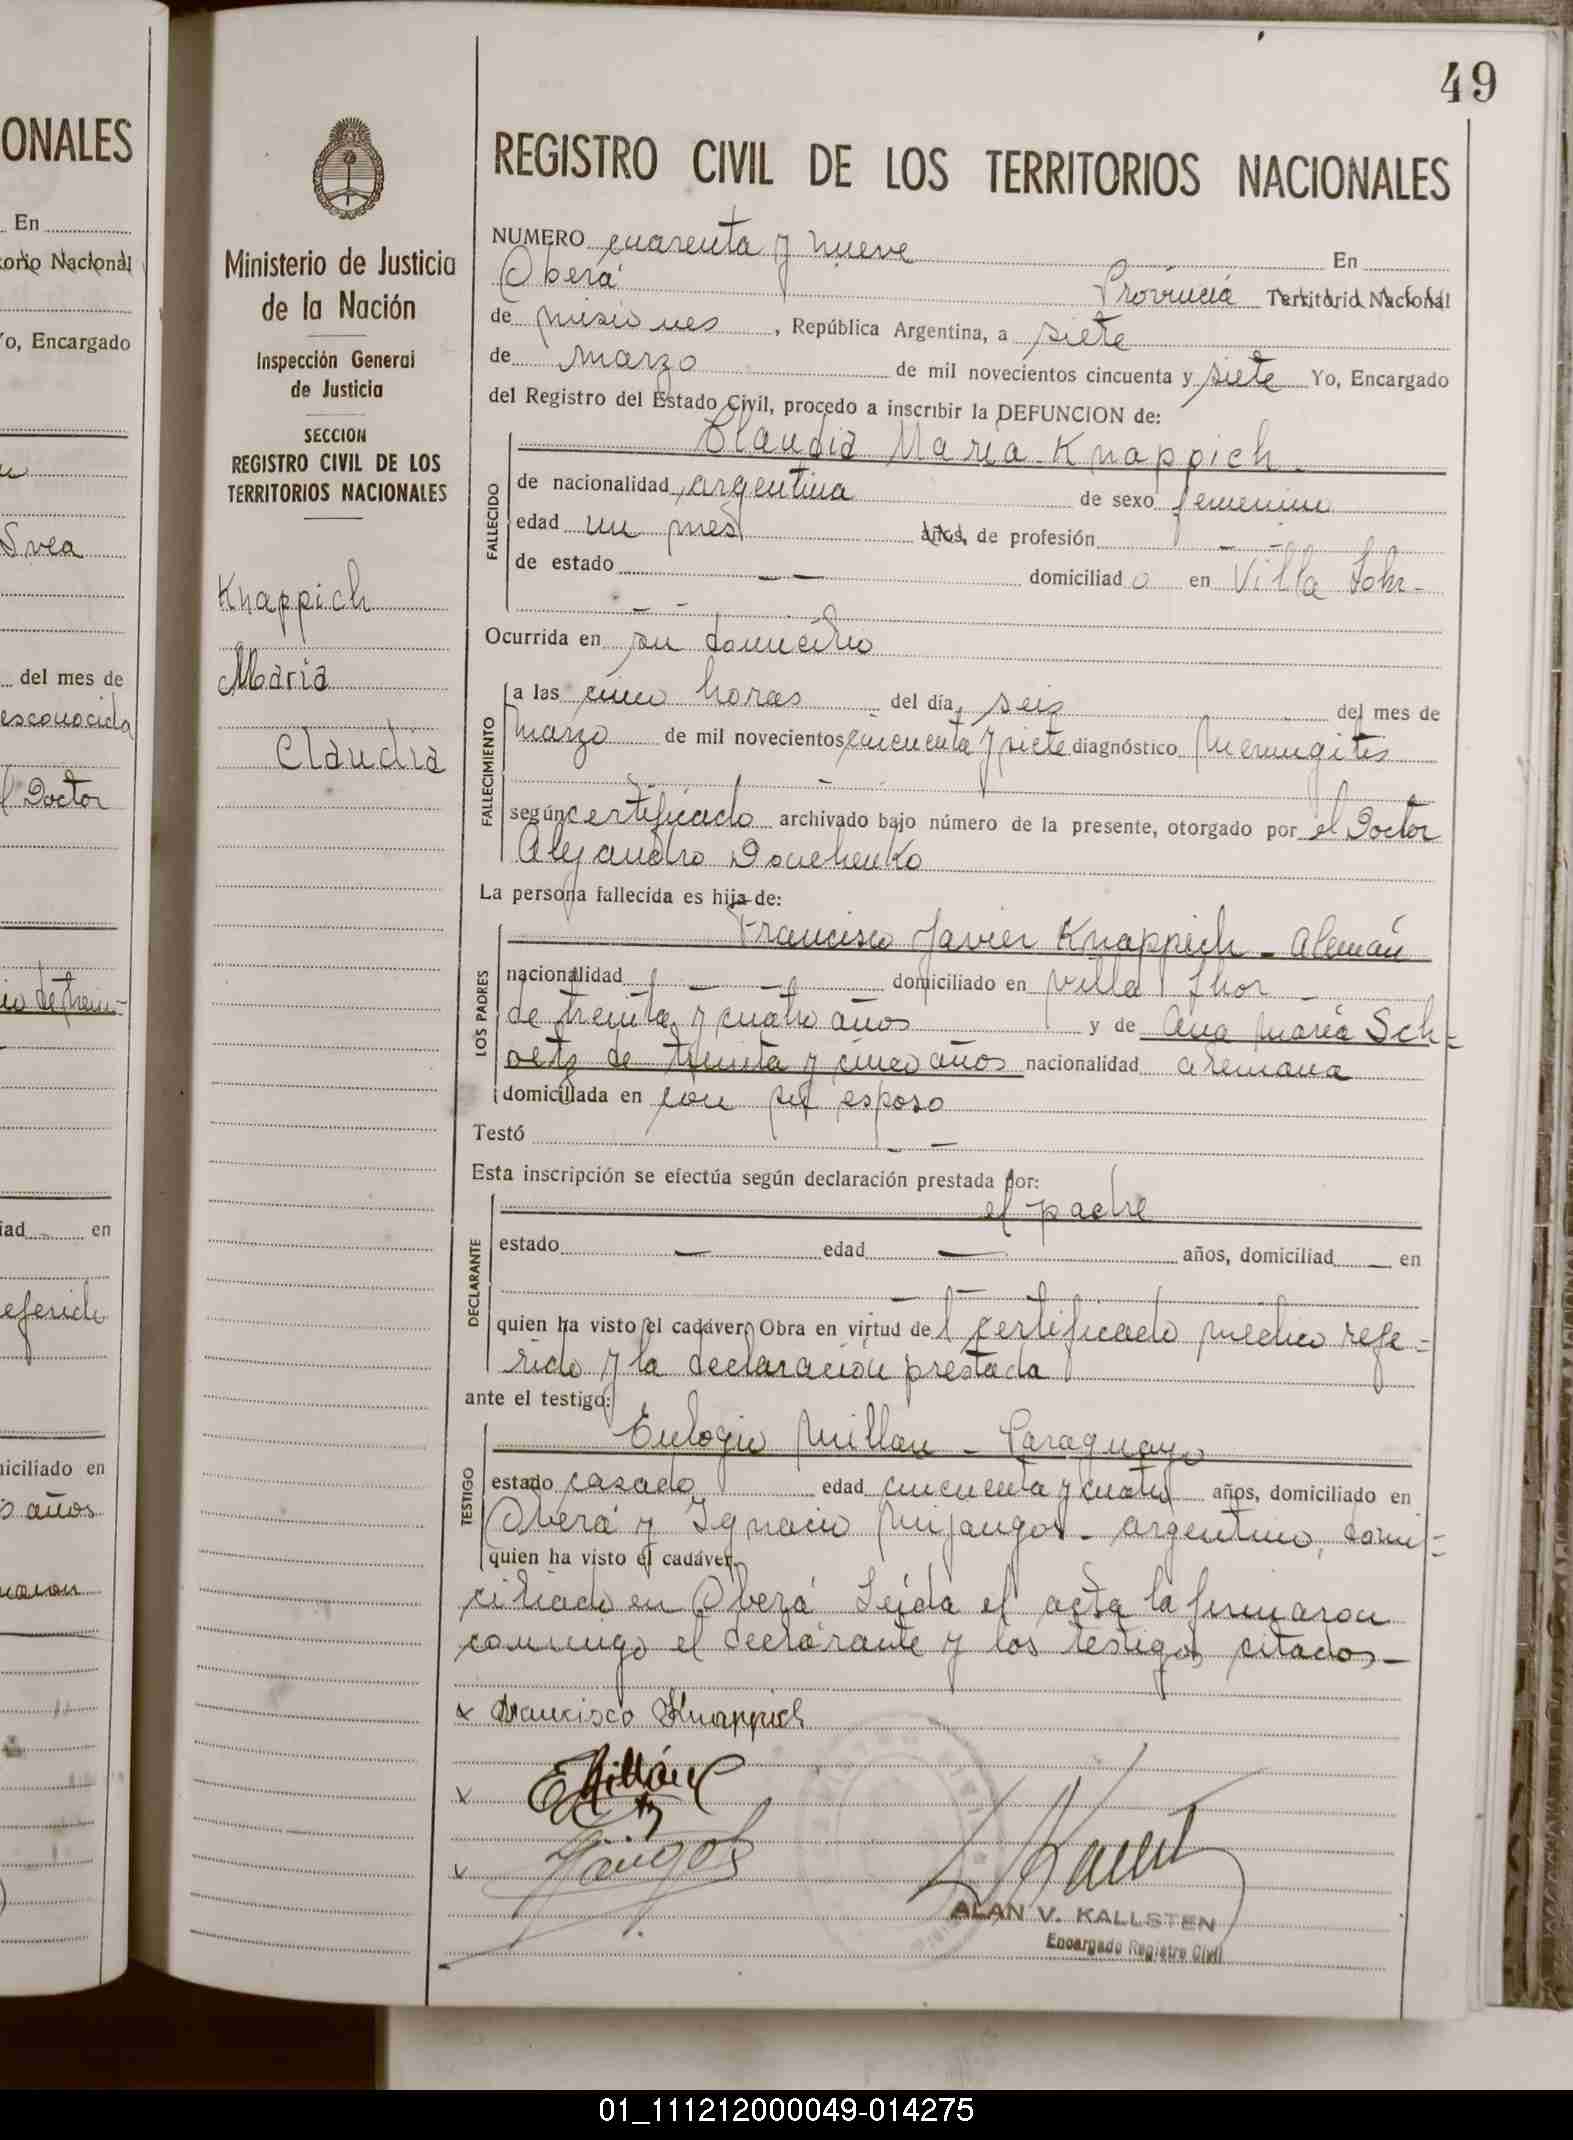 49
ONALES
En
orio Nacional
o, Encargado
Svea
del mes de
esconocida
l Doctor
iad en
eferido
iciliado en
años
Ministerio de Justicia
de la Nación
Inspección General
de Justicia
SECCION
REGISTRO CIVIL DE LOS
TERRITORIOS NACIONALES
Knappich
Maria
Claudia
REGISTRO CIVIL DE LOS TERRITORIOS NACIONALES
NUMERO cuarenta y nueve En
Oberá Provincia Territorio Nacional
de misiones, República Argentina, a siete
de marzo de mil novecientos cincuenta y siete Yo, Encargado
del Registro del Estado Civil, procedo a inscribir la DEFUNCION de:
Claudia Maria Knappich
FALLECIDO
de nacionalidad argentina de sexo femenino
edad un mes años, de profesión
de estado domiciliado en Villa
Ocurrida en su domicilio
FALLECIMIENTO
a las cinco horas del día seis del mes de
marzo de mil novecientos cincuenta y siete diagnóstico meningitis
según certificado archivado bajo número de la presente, otorgado por el Doctor
Alejandro
La persona fallecida es hija de:
LOS PADRES
Francisco Javier Knappich - Alemán
nacionalidad domiciliado en villa
de treinta y cuatro años y de Ana maría Sch=
oetz de treinta y cinco años nacionalidad alemana
domiciliada en con su esposo
Testó
Esta inscripción se efectúa según declaración prestada por:
DECLARANTE
el padre
estado edad años, domiciliad en
quien ha visto el cadáver. Obra en virtud del certificado médico refe=
rido y la declaración prestada
ante el testigo:
TESTIGO
Eulogio Millan - Paraguayo
estado casado edad cincuenta y cuatro años, domiciliado en
Oberá y Ignacio Mijangos - argentino, domi=
quien ha visto el cadáver.
ciliado en Oberá Leída el acta la firmaron
conmigo el declarante y los testigos citados-
x Francisco Knappich
x EMillán
x
ALAN V. KALLSTEN
Encargado Registro Civil
01_111212000049-014275